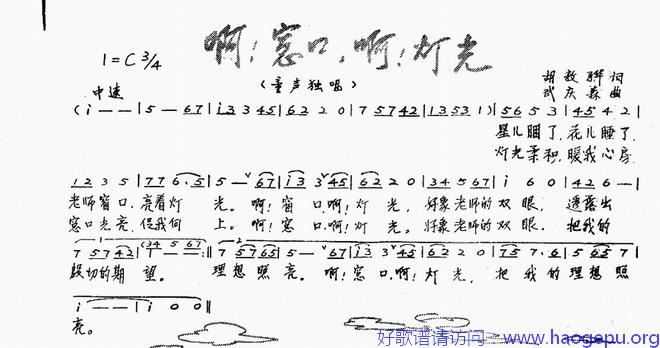 啊!窗口,啊!灯光
1=C 3/4
(童声独唱)
中速
胡敦骅 词
武庆森 曲
(i — — | 5 — 67 | i3 3 45 | 62 2 0 | 7 57 42 | 13 53 1) | 56 5 3 | 45 4 2 |
星儿睏了,花儿睡了,
灯光柔和,暖我心房,
12 3 5 | 77 6.5 | 5 — 67 | i3 3 45 | 62 2 0 | 34 5 67 | i 6 0 | 42 6 — |
老师窗口,亮着灯光。啊!窗口,啊!灯光,好象老师的双眼,透露出
窗口光亮,促我向上。啊!窗口,啊!灯光,好象老师的双眼,把我的
7 57 42 | 1 — — :| 7 57 65 | 5 — 67 | i3 3 45 | 62 2 0 | 75 7.6 | 5 65 7 |
(34 5 67
殷切的期望。 理想照亮。啊!窗口,啊!灯光,把我的理想照
i — — | i 0 0 ‖
亮。
好歌谱请访问:www.haogepu.org